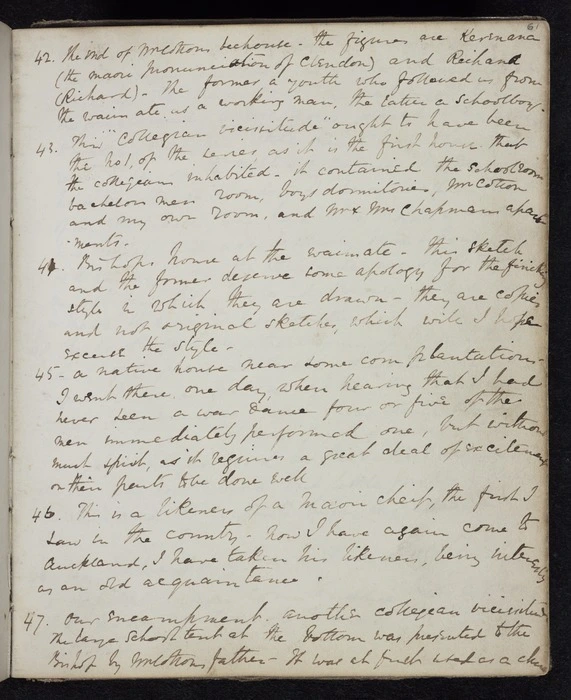 61
42. The end of Mr Cottons beehouse - the figures are Kerenana
(the maori pronunciation of Clendon) and Reihana
(Richard) - The former a youth who followed us from
the waimate as a working man, the latter a schoolboy.
43. This "Collegian vicissitude" ought to have been
the no 1, of the series, as it is the first house that
the collegians inhabited - it contained the schoolroom
bachelors mens room, boys dormitories, Mr Cotton
and my own room, and Mr & Mrs Chapmans apart
-ments.
44. Bishops house at the waimate - This sketch
and the former deserve some apology for the finiking
style in which they are drawn - they are copies
and not original sketches, which will I hope
excuse the style -
45 - a native house near some corn plantation -
I went there one day, when hearing that I had
never seen a war dance four or five of the
men immediately performed one, but without
much spirit, as it requires a great deal of excitement
on their parts to be done well
46. This is a likeness of a Maori cheif, the first I
saw in the country - now I have again come to
Auckland, I have taken his likeness, being interesting
as an old acquaintance.
47. Our encampment. another collegian vicissitude
The large School tent at the bottom was presented to the
Bishop by Mr Cottons father - It was at first used as a